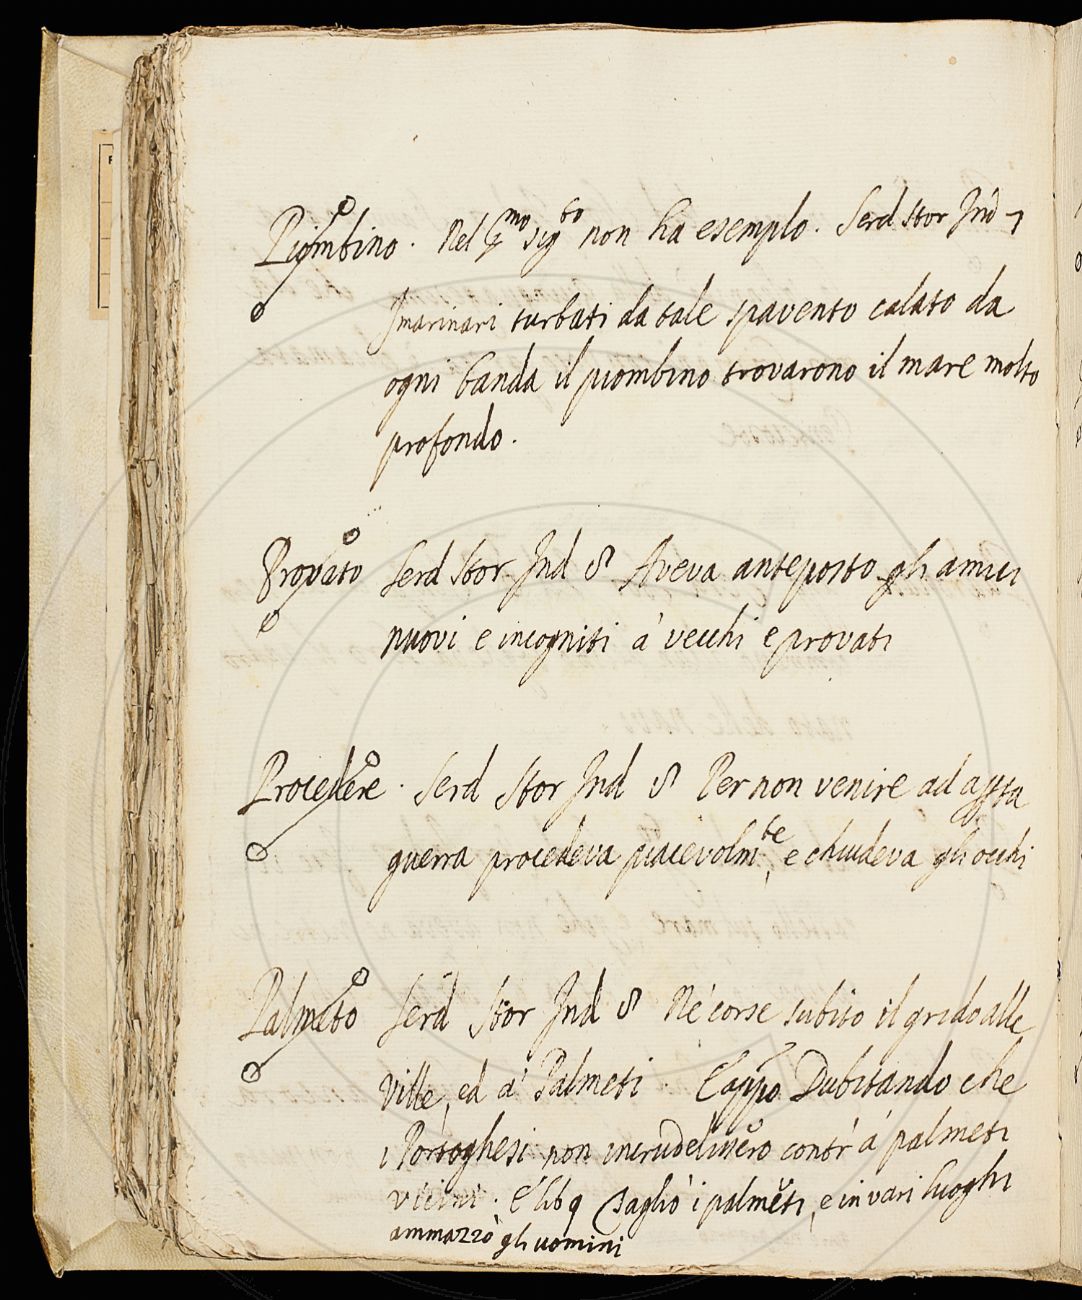 Piombino. Nel p.mo sig.to non ha esempio. Serd Stor Ind 7
I marinari turbati da tale spavento calato da
ogni banda il piombino trovarono il mare molto
profondo.
Provato Serd Stor Ind 8 Aveva anteposto gli amici
nuovi e incogniti a' vecchi e provati
Procedere. Serd Stor Ind 8 Per non venire ad apta
guerra procedeva piacevolm.te, e chiudeva gli occhi
Palmeto Serd Stor Ind 8 Ne' corse subito il grido alle
Ville, ed a' Palmeti. E appo Dubitando che
i Portoghesi non incrudelissero contr' a' palmeti
vicini. E lib 9 Tagliò i palmeti, e in vari luoghi
ammazzò gli uomini